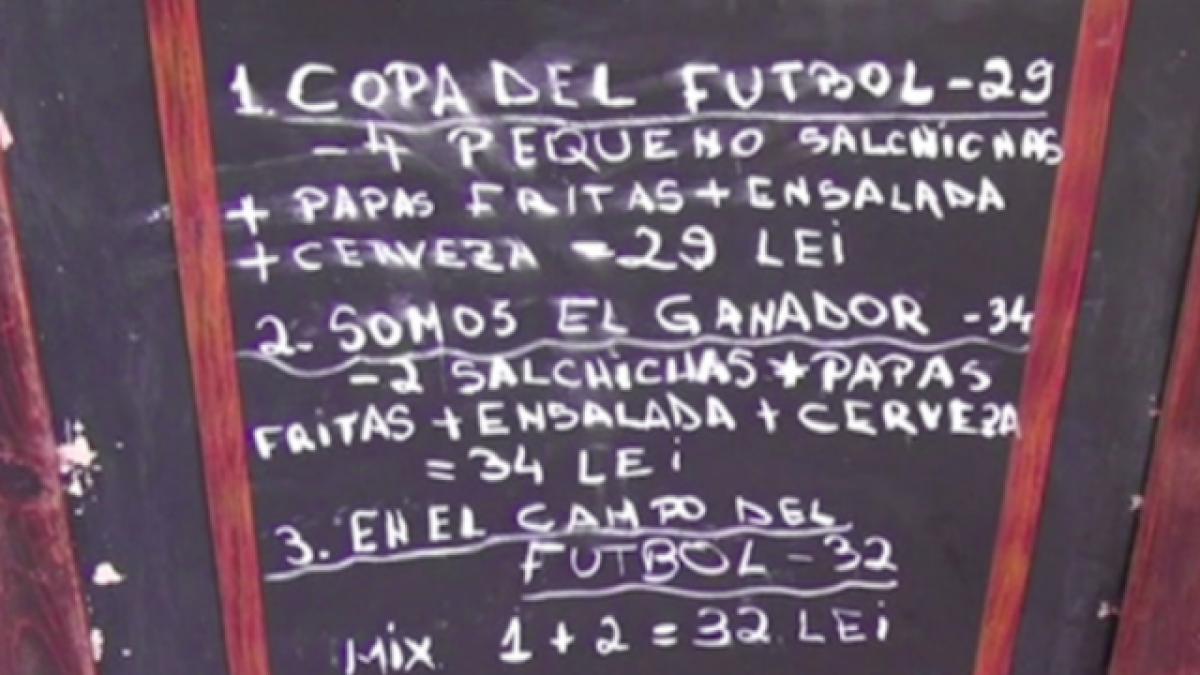 1. COPA DEL FUTBOL - 29
- 4 PEQUENO SALCHiCHAS
+ PAPAS FRITAS + ENSALADA
+ CERVEZA - 29 LEi
2. SOMOS EL GANADOR - 34
- 2 SALCHiCHAS + PAPAS
FRITAS + ENSALADA + CERVEZA
= 34 LEi
3. EN EL CAMPO DEL
FUTBOL - 32
MiX 1 + 2 = 32 LEi